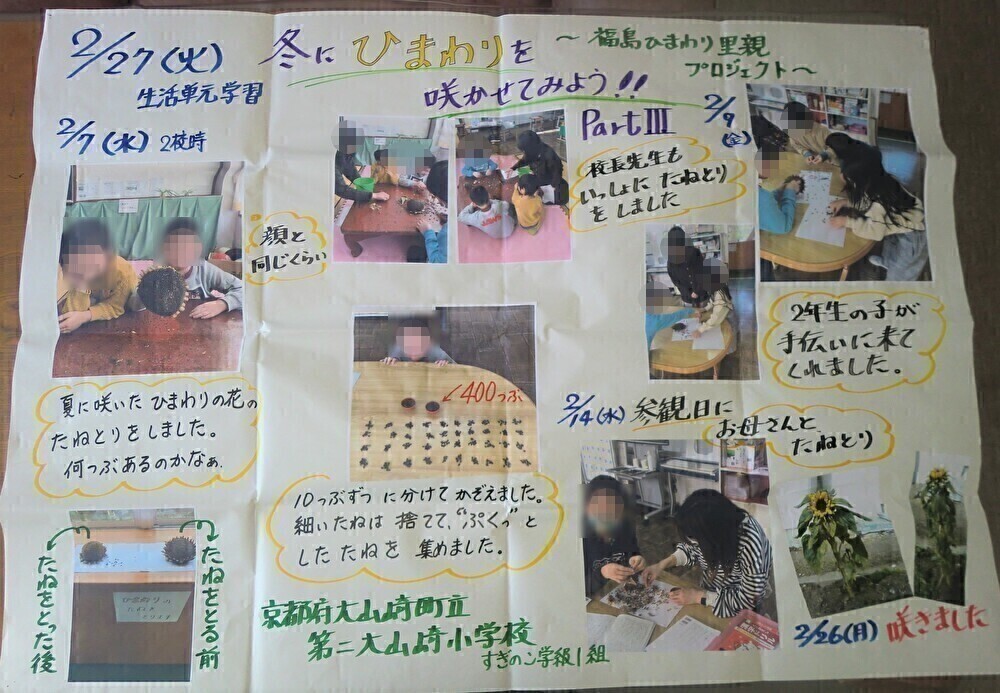 2/27(火)
生活単元学習
冬にひまわりを
咲かせてみよう!!
PartⅢ
～福島ひまわり里親
プロジェクト～
2/7(水) 2校時
顔と
同じくらい
夏に咲いた ひまわりの花の
たねとりをしました。
何つぶあるのかなぁ.
たねをとった後
たねをとる前
←400つぶ
10つぶずつ に分けて かぞえました。
細いたねは 捨てて、“ぷくっ”と
した たねを 集めました。
2/9(金)
校長先生も
いっしょに たねとり
をしました
2年生の子が
手伝いに来て
くれました。
2/14(水) 参観日に
お母さんと
たねとり
2/26(月) 咲きました
京都府大山崎町立
第二大山崎小学校
すぎのこ学級1組